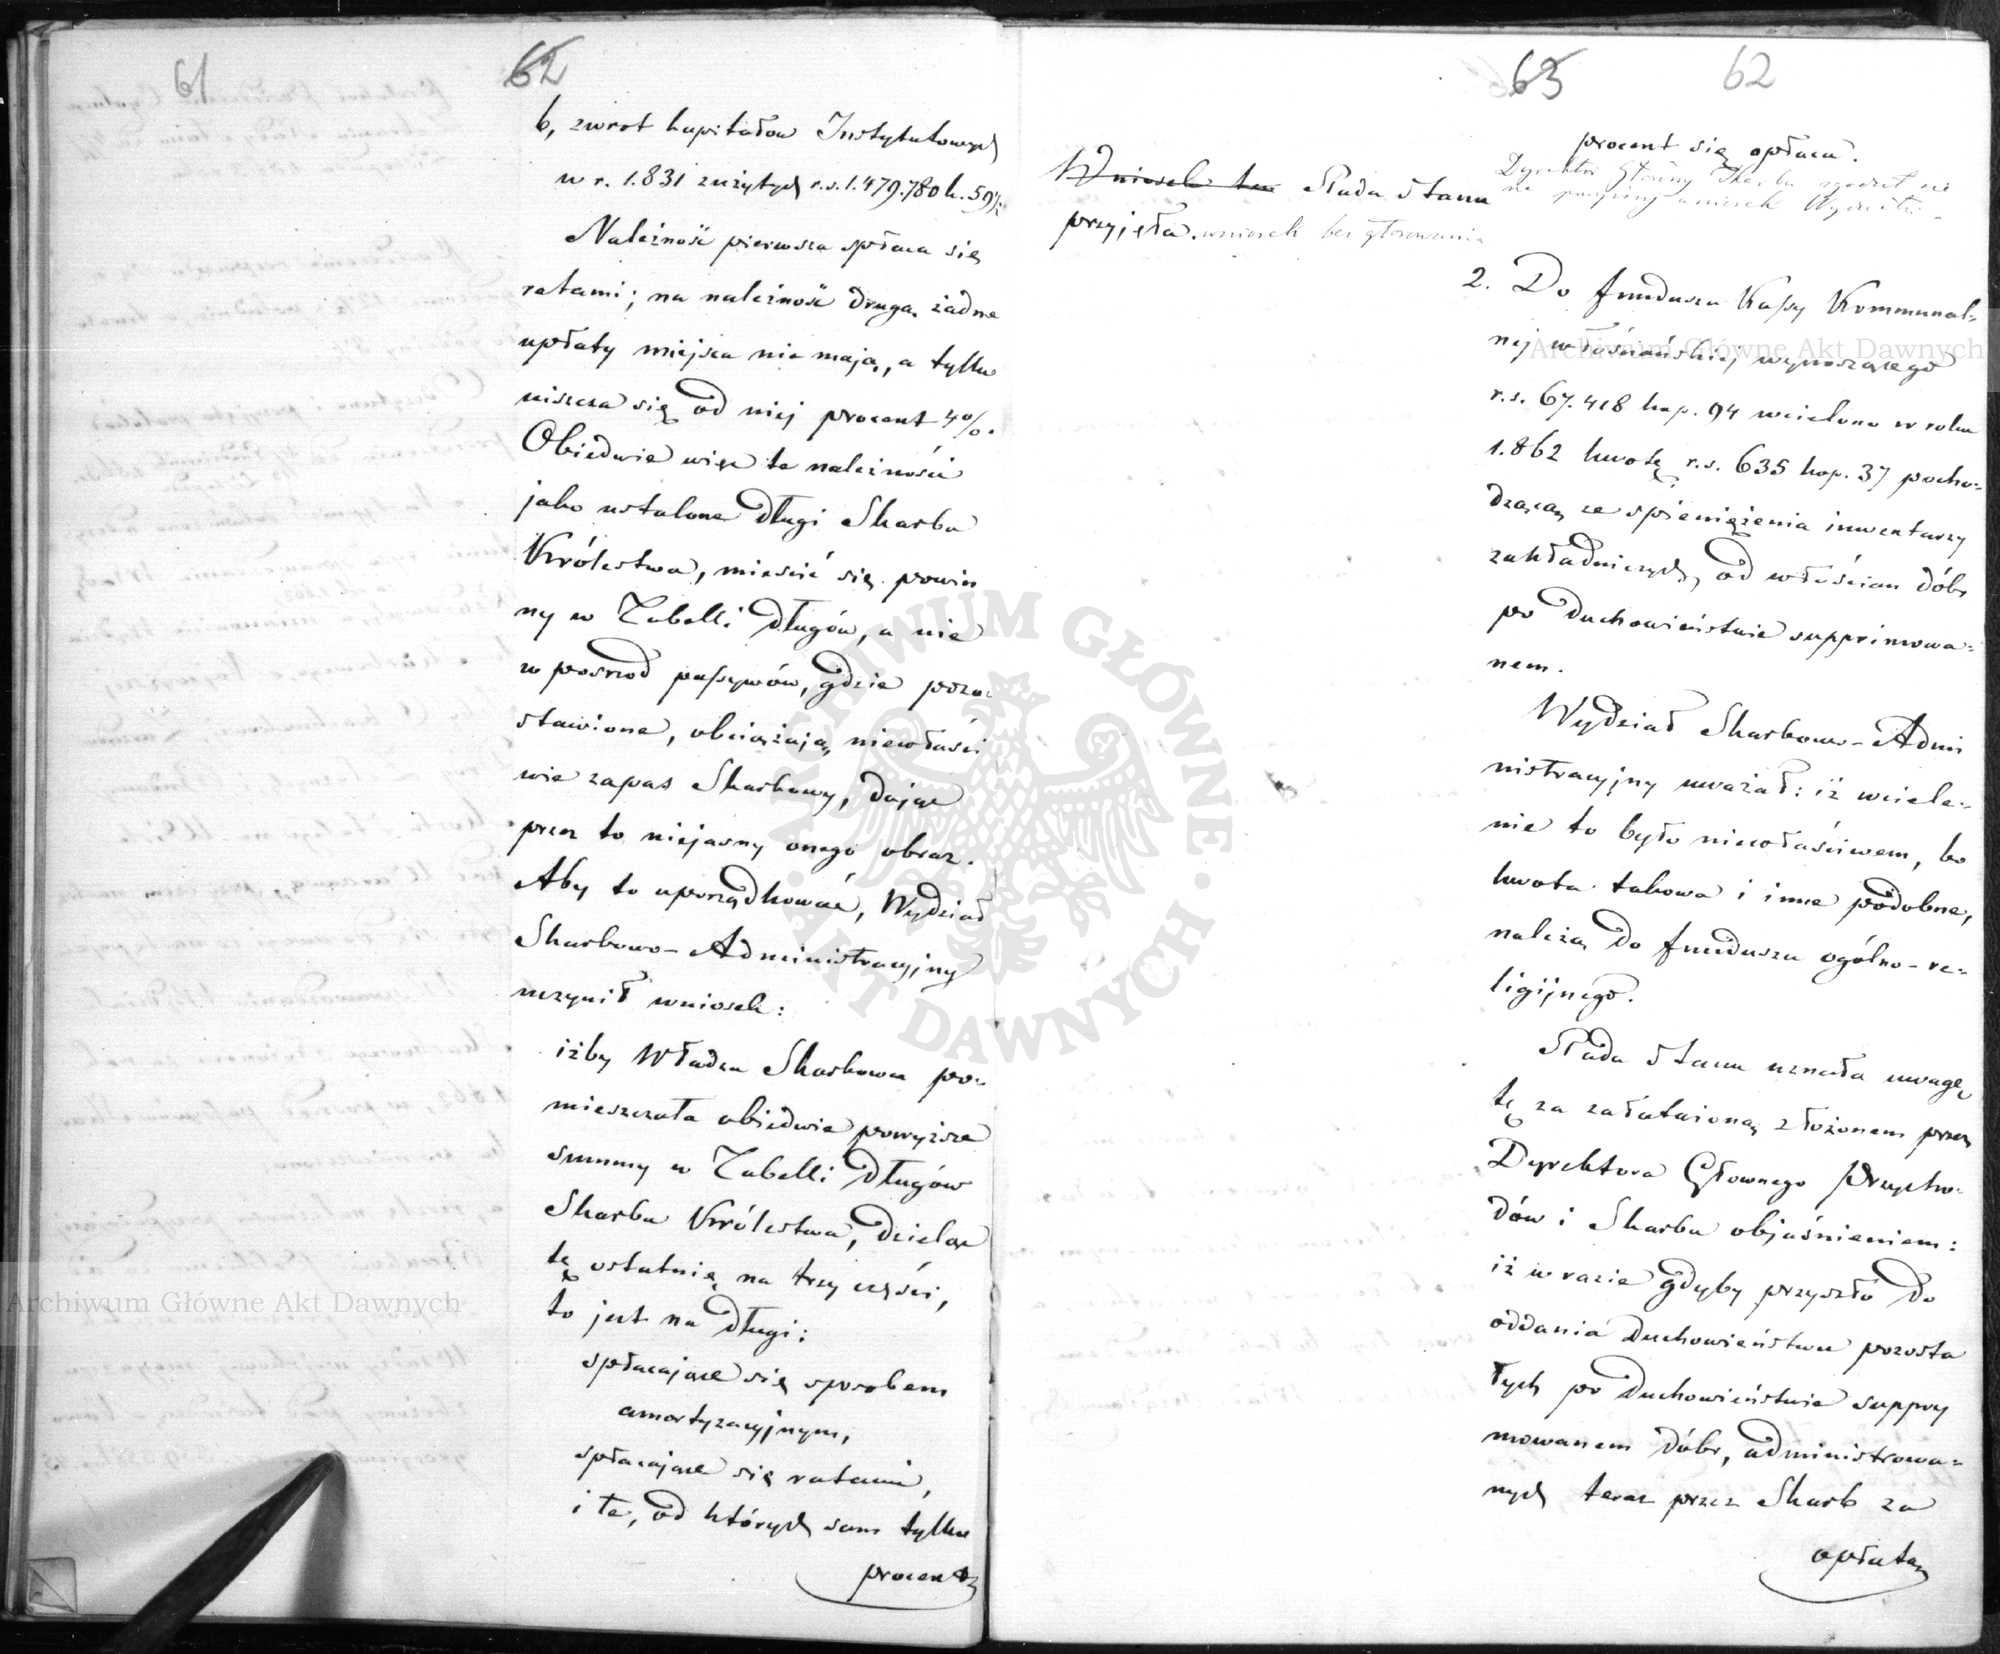 61
62
b, zwrot kapitałów Instytutowych
w r. 1.831 zużytych r.s. 1.479.780 k. 59½
Należność pierwsza spłaca się
ratami; na należność drugą żadne
upłaty miejsca nie mają, a tylko
uiszcza się od niej procent 4%.
Obiedwie więc te należności
jako ustalone długi Skarbu
Królestwa, mieścić się powin
ny w Tabelli długów, a nie
w pośrod passywów, gdzie pozo-
stawione, obciążają niewłaści
wie zapas Skarbowy, dając
przez to niejasny onego obraz.
Aby to uporządkować, Wydział
Skarbowo-Administracyjny
uczynił wniosek:
iżby Władza Skarbowa po-
mieszczała obiedwie powyższe
summy w Tabelli długów
Skarbu Królestwa, dzieląc
tę ostatnię na trzy części,
to jest na długi:
spłacające się sposobem
amortyzacyjnym,
spłacające się ratami,
i te, od których sam tylko
procent
63
62
procent się opłaca.
Dyrektor Główny Skarbu zgodził się
na powyższy wniosek Wydziału.
Wniosek ten Rada Stanu
przyjęła. wniosek bez głosowania
2. Do funduszu Kassy Kommunal-
nej włościańskiej wynoszącego
r.s. 67.418 kop. 94 wcielono w roku
1.862 kwotę r.s. 635 kop. 37 pocho-
dzącą ze spieniężenia inwentarzy
zakładniczych, od włościan dóbr
po Duchowieństwie supprimowa-
nem.
Wydział Skarbowo-Admi
nistracyjny uważał: iż wciele-
nie to było niewłaściwem, bo
kwota takowa i inne podobne,
należą do funduszu ogólno-re-
ligijnego.
Rada Stanu uznała uwagę
tę za załatwioną złożonem przez
Dyrektora Głównego Przycho-
dów i Skarbu objaśnieniem:
iż w razie gdyby przyszło do
oddania Duchowieństwu pozosta
łych po Duchowieństwie suppry
mowanem dóbr, administrowa-
nych teraz przez Skarb za
opłatą
Archiwum Główne Akt Dawnych
Archiwum Główne Akt Dawnych
ARCHIWUM GŁÓWNE AKT DAWNYCH